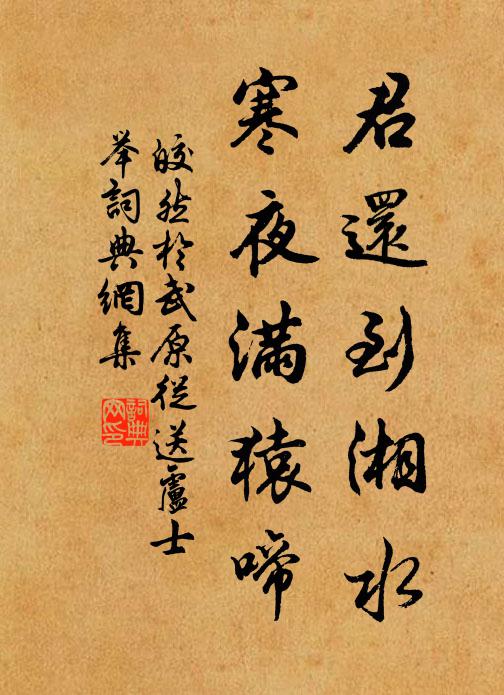 君還到湘水
寒夜滿猿啼
皎然於武原從送盧士
举詞典網集
詞典
网印